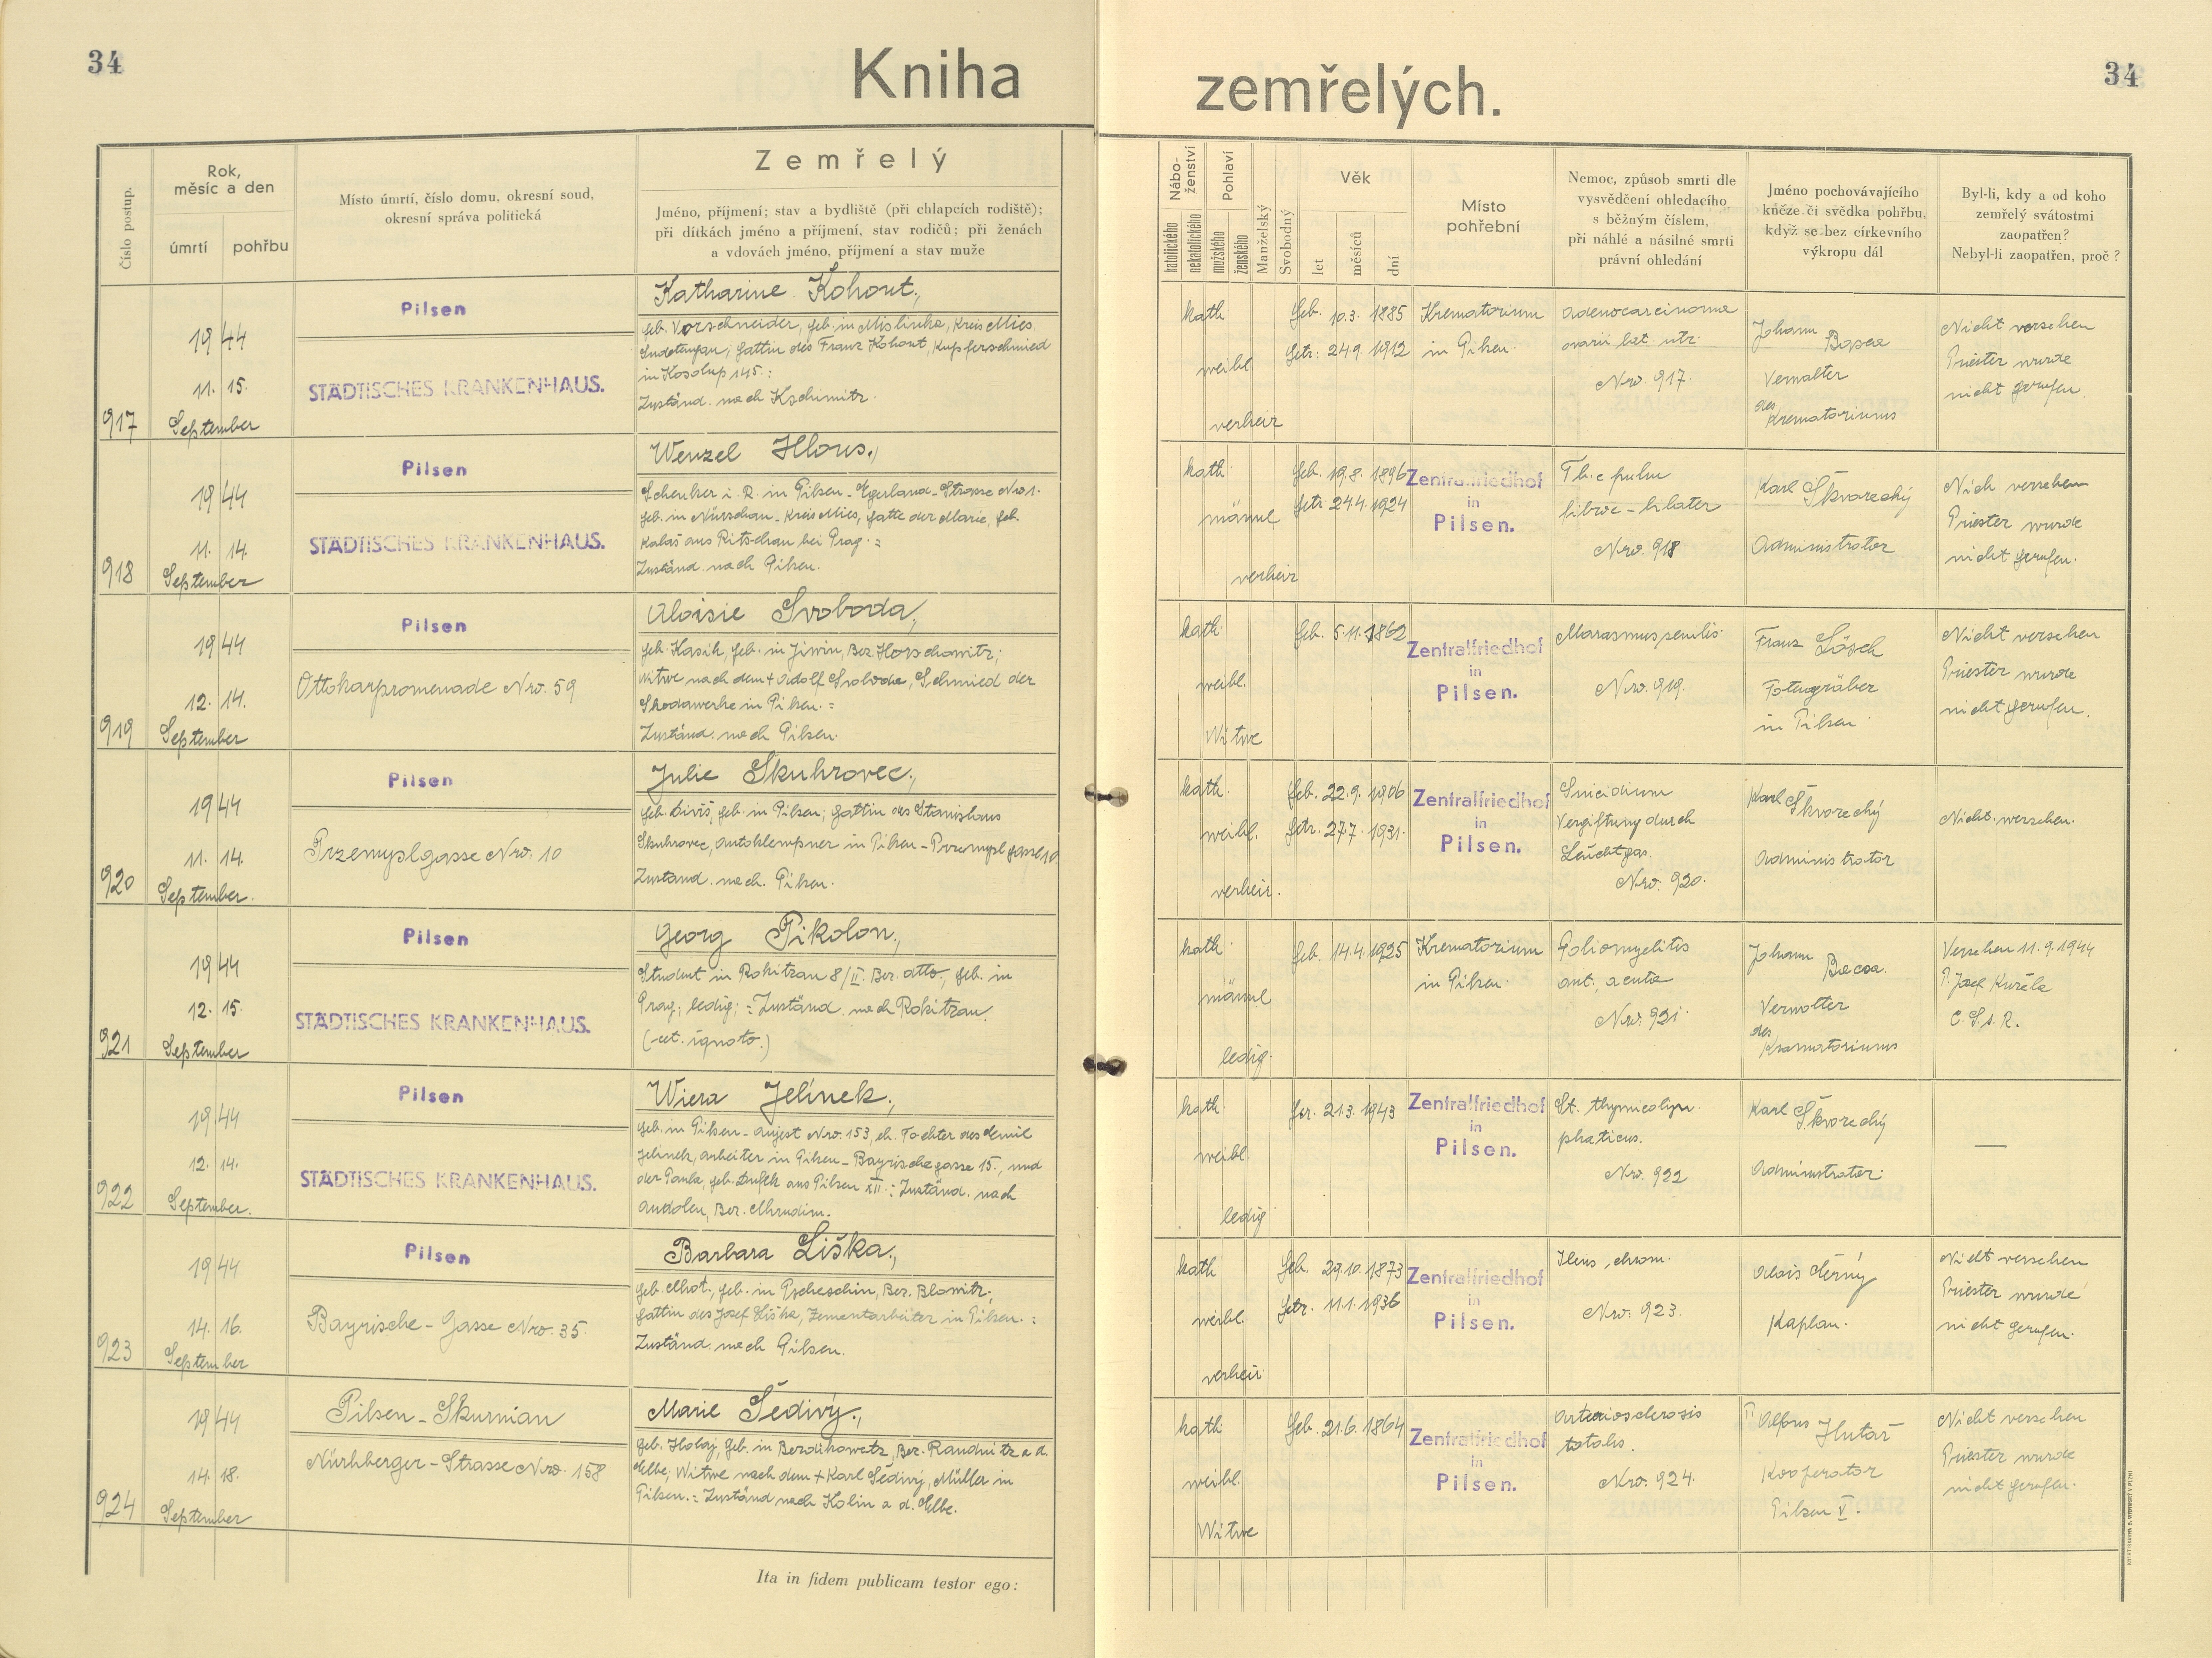 34
Kniha zemřelých.
34
Číslo postup.
Rok, měsíc a den
úmrtí
pohřbu
Místo úmrtí, číslo domu, okresní soud,
okresní správa politická
Zemřelý
Jméno, příjmení; stav a bydliště (při chlapcích rodiště);
při dítkách jméno a příjmení, stav rodičů; při ženách
a vdovách jméno, příjmení a stav muže
Nábo-
ženství
katolického
nekatolického
Pohlaví
mužského
ženského
Manželský
Svobodný
Věk
let
měsíců
dní
Místo
pohřební
Nemoc, způsob smrti dle
vysvědčení ohledacího
s běžným číslem,
při náhlé a násilné smrti
právní ohledání
Jméno pochovávajícího
kněze či svědka pohřbu,
když se bez církevního
výkropu dál
Byl-li, kdy a od koho
zemřelý svátostmi
zaopatřen?
Nebyl-li zaopatřen, proč?
917
1944
11. 15.
September
Pilsen
STÄDTISCHES KRANKENHAUS.
Katharine Kohout,
geb. Vorschneider, geb. in Mislinka, Kreis Mies
Sudetengau; Gattin des Franz Kohout, Kupferschmied
in Kosolup 145.:
Zuständ. nach Kschimitz.
kath
weibl.
verheir
Geb. 10.3. 1885
Getr: 24.9. 1912
Krematorium
in Pilsen.
Adenocarcinoma
ovarii lat. utr.
Nro. 917.
Johann
Verwalter
des
Krematoriums
Nicht versehen
Priester wurde
nicht gerufen.
918
1944
11. 14.
September
Pilsen
STÄDTISCHES KRANKENHAUS.
Wenzel Hlous.,
Schenker i. R. in Pilsen - Egerland-Strasse Nro 1.
geb. in Nürschau - Kreis Mies, Gatte der Marie, geb.
Kalaš aus Ritschau bei Prag.:
Zuständ. nach Pilsen.
kath.
männl
verheir
Geb. 19.8. 1896
Getr. 24.4. 1924
Zentralfriedhof
in
Pilsen.
Tb.c pulm
fibroc - bilater
Nro. 918
Karl Škvorechý
Administrator
Nich versehen
Priester wurde
nicht gerufen.
919
1944
12. 14.
September
Pilsen
Ottokarpromenade Nro. 59
Aloisie Svoboda,
geb. Kasík, geb. in Jiwin, Bez. Horschowitz;
Witwe nach dem + Adolf Svoboda, Schmied der
Skodawerke in Pilsen.:
Zuständ. nach Pilsen.
kath.
weibl.
Witwe
Geb. 5.11. 1862
Zentralfriedhof
in
Pilsen.
Marasmus senilis.
Nro. 919.
Franz Lösch
Totengräber
in Pilsen
Nicht versehen
Priester wurde
nicht gerufen.
920
1944
11. 14.
September.
Pilsen
Przemyslgasse Nro. 10
Julie Skuhrovec,
geb. Diviš, geb. in Pilsen; Gattin des Stanislaus
Skuhrovec, Autoklempner in Pilsen - Przemyslgasse 10.
Zustand. nach. Pilsen.
kath.
weibl.
verheir.
Geb. 22.9. 1906
Getr. 27.7. 1931.
Zentralfriedhof
in
Pilsen.
Suicidium
Vergiftung durch
Leuchtgas.
Nro. 920.
Karl Škvorechý
Administrator
Nicht versehen.
921
1944
12. 15.
September
Pilsen
STÄDTISCHES KRANKENHAUS.
Georg Pikolon,
Student in Rokitzan 8/II. Bez. dtto., geb. in
Prag; ledig; : Zuständ. nach Rokitzan.
(-cet. ignoto.)
kath.
männl
ledig.
Geb. 14.4. 1925
Krematorium
in Pilsen.
Poliomyelitis
ant. acuta
Nro. 921.
Johann
Verwalter
des
Krematoriums
Versehen 11.9.1944
P. Josef Kužela
C.S.s.R.
922
1944
12. 14.
September.
Pilsen
STÄDTISCHES KRANKENHAUS.
Wiera Jelínek.,
geb. in Pilsen - Aujest Nro. 153, eh. Tochter des Emil
Jelinek, Arbeiter in Pilsen - Bayrischegasse 15., und
der Paula, geb. Dufek aus Pilsen XII.: Zuständ. nach
Andolen, Bez. Chrudim.
kath.
weibl.
ledig
Ger. 21.3. 1943
Zentralfriedhof
in
Pilsen.
St. thymicolym-
phaticus.
Nro. 922
Karl Škvorechý
Administrator.
—
923
1944
14. 16.
September
Pilsen
Bayrische - Gasse Nro. 35.
Barbara Liška.,
geb. Chot., geb. in Pscheschin, Bez. Blowitz;
Gattin des Josef Liška, Zementarbeiter in Pilsen.:
Zuständ. nach Pilsen.
kath
weibl.
verheir
Geb. 29.10. 1873
Getr. 11.1. 1936
Zentralfriedhof
in
Pilsen.
Ileus, chron.
Nro. 923.
Alois Černý
Kaplan.
Nicht versehen
Priester wurde
nicht gerufen.
924
1944
14. 18.
September
Pilsen - Skurnian
Nürhberger - Strasse Nro. 158
Marie Šedivý.,
geb. Holoj, geb. in Berdikowetz, Bez. Raudnitz a d.
Elbe; Witwe nach dem + Karl Šedivý, Müller in
Pilsen.: Zuständ nach Kolin a d. Elbe.
kath
weibl.
Witwe
Geb. 21.6. 1864
Zentralfriedhof
in
Pilsen.
Arteriosclerosis
totalis.
Nro. 924.
P. Alfons Hutař
Kooperator
Pilsen V.
Nicht versehen
Priester wurde
nicht gerufen.
Ita in fidem publicam testor ego: